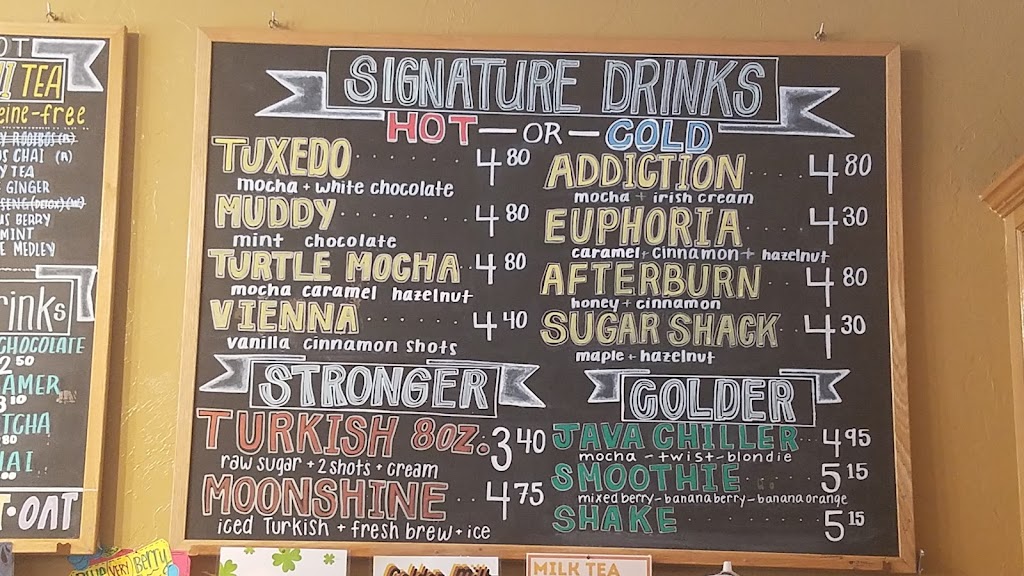 OT
! TEA
eine-free
Y ROOIBOS (R)
US CHAI (R)
Y TEA
GINGER
SENG (DETOX)
US BERRY
MINT
E MEDLEY
rinks
CHOCOLATE
2 50
AMER
3 10
TCHA
80
HAI
T•OAT
SIGNATURE DRINKS
HOT — OR — COLD
TUXEDO 4 80
mocha + white chocolate
MUDDY 4 80
mint chocolate
TURTLE MOCHA 4 80
mocha caramel hazelnut
VIENNA 4 40
vanilla cinnamon shots
ADDICTION 4 80
mocha + irish cream
EUPHORIA 4 30
caramel + cinnamon + hazelnut
AFTERBURN 4 80
honey + cinnamon
SUGAR SHACK 4 30
maple + hazelnut
STRONGER
TURKISH 8OZ. 3 40
raw sugar + 2 shots + cream
MOONSHINE 4 75
iced Turkish + fresh brew + ice
COLDER
JAVA CHILLER 4 95
mocha - twist - blondie
SMOOTHIE 5 15
mixed berry - banana berry - banana orange
SHAKE 5 15
BLUE (VERY) BERRY
Golden Milk
MILK TEA